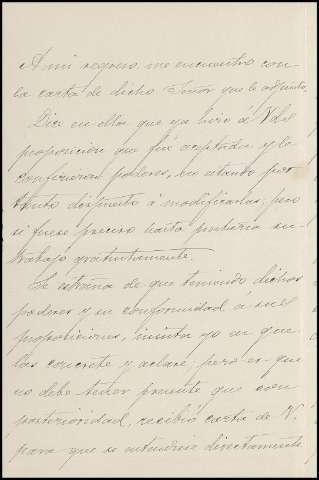 A mi regreso, me encuentro con
la carta de dicho Señor que le adjunto.
Dice en ella que ya hizo á Vds
proposición que fué aceptada y le
confirieron poderes, no estando por
tanto dispuesto á modificarlas, pero
si fuese preciso hasta pintaria su
trabajo gratuitamente.
Se extraña de que teniendo dichos
poderes y su conformidad á sus
proposiciones, insista yo en que
las concrete y aclare; pero es que
no debe tener presente que con
posterioridad, recibió carta de V.
para que se entendiese directamente